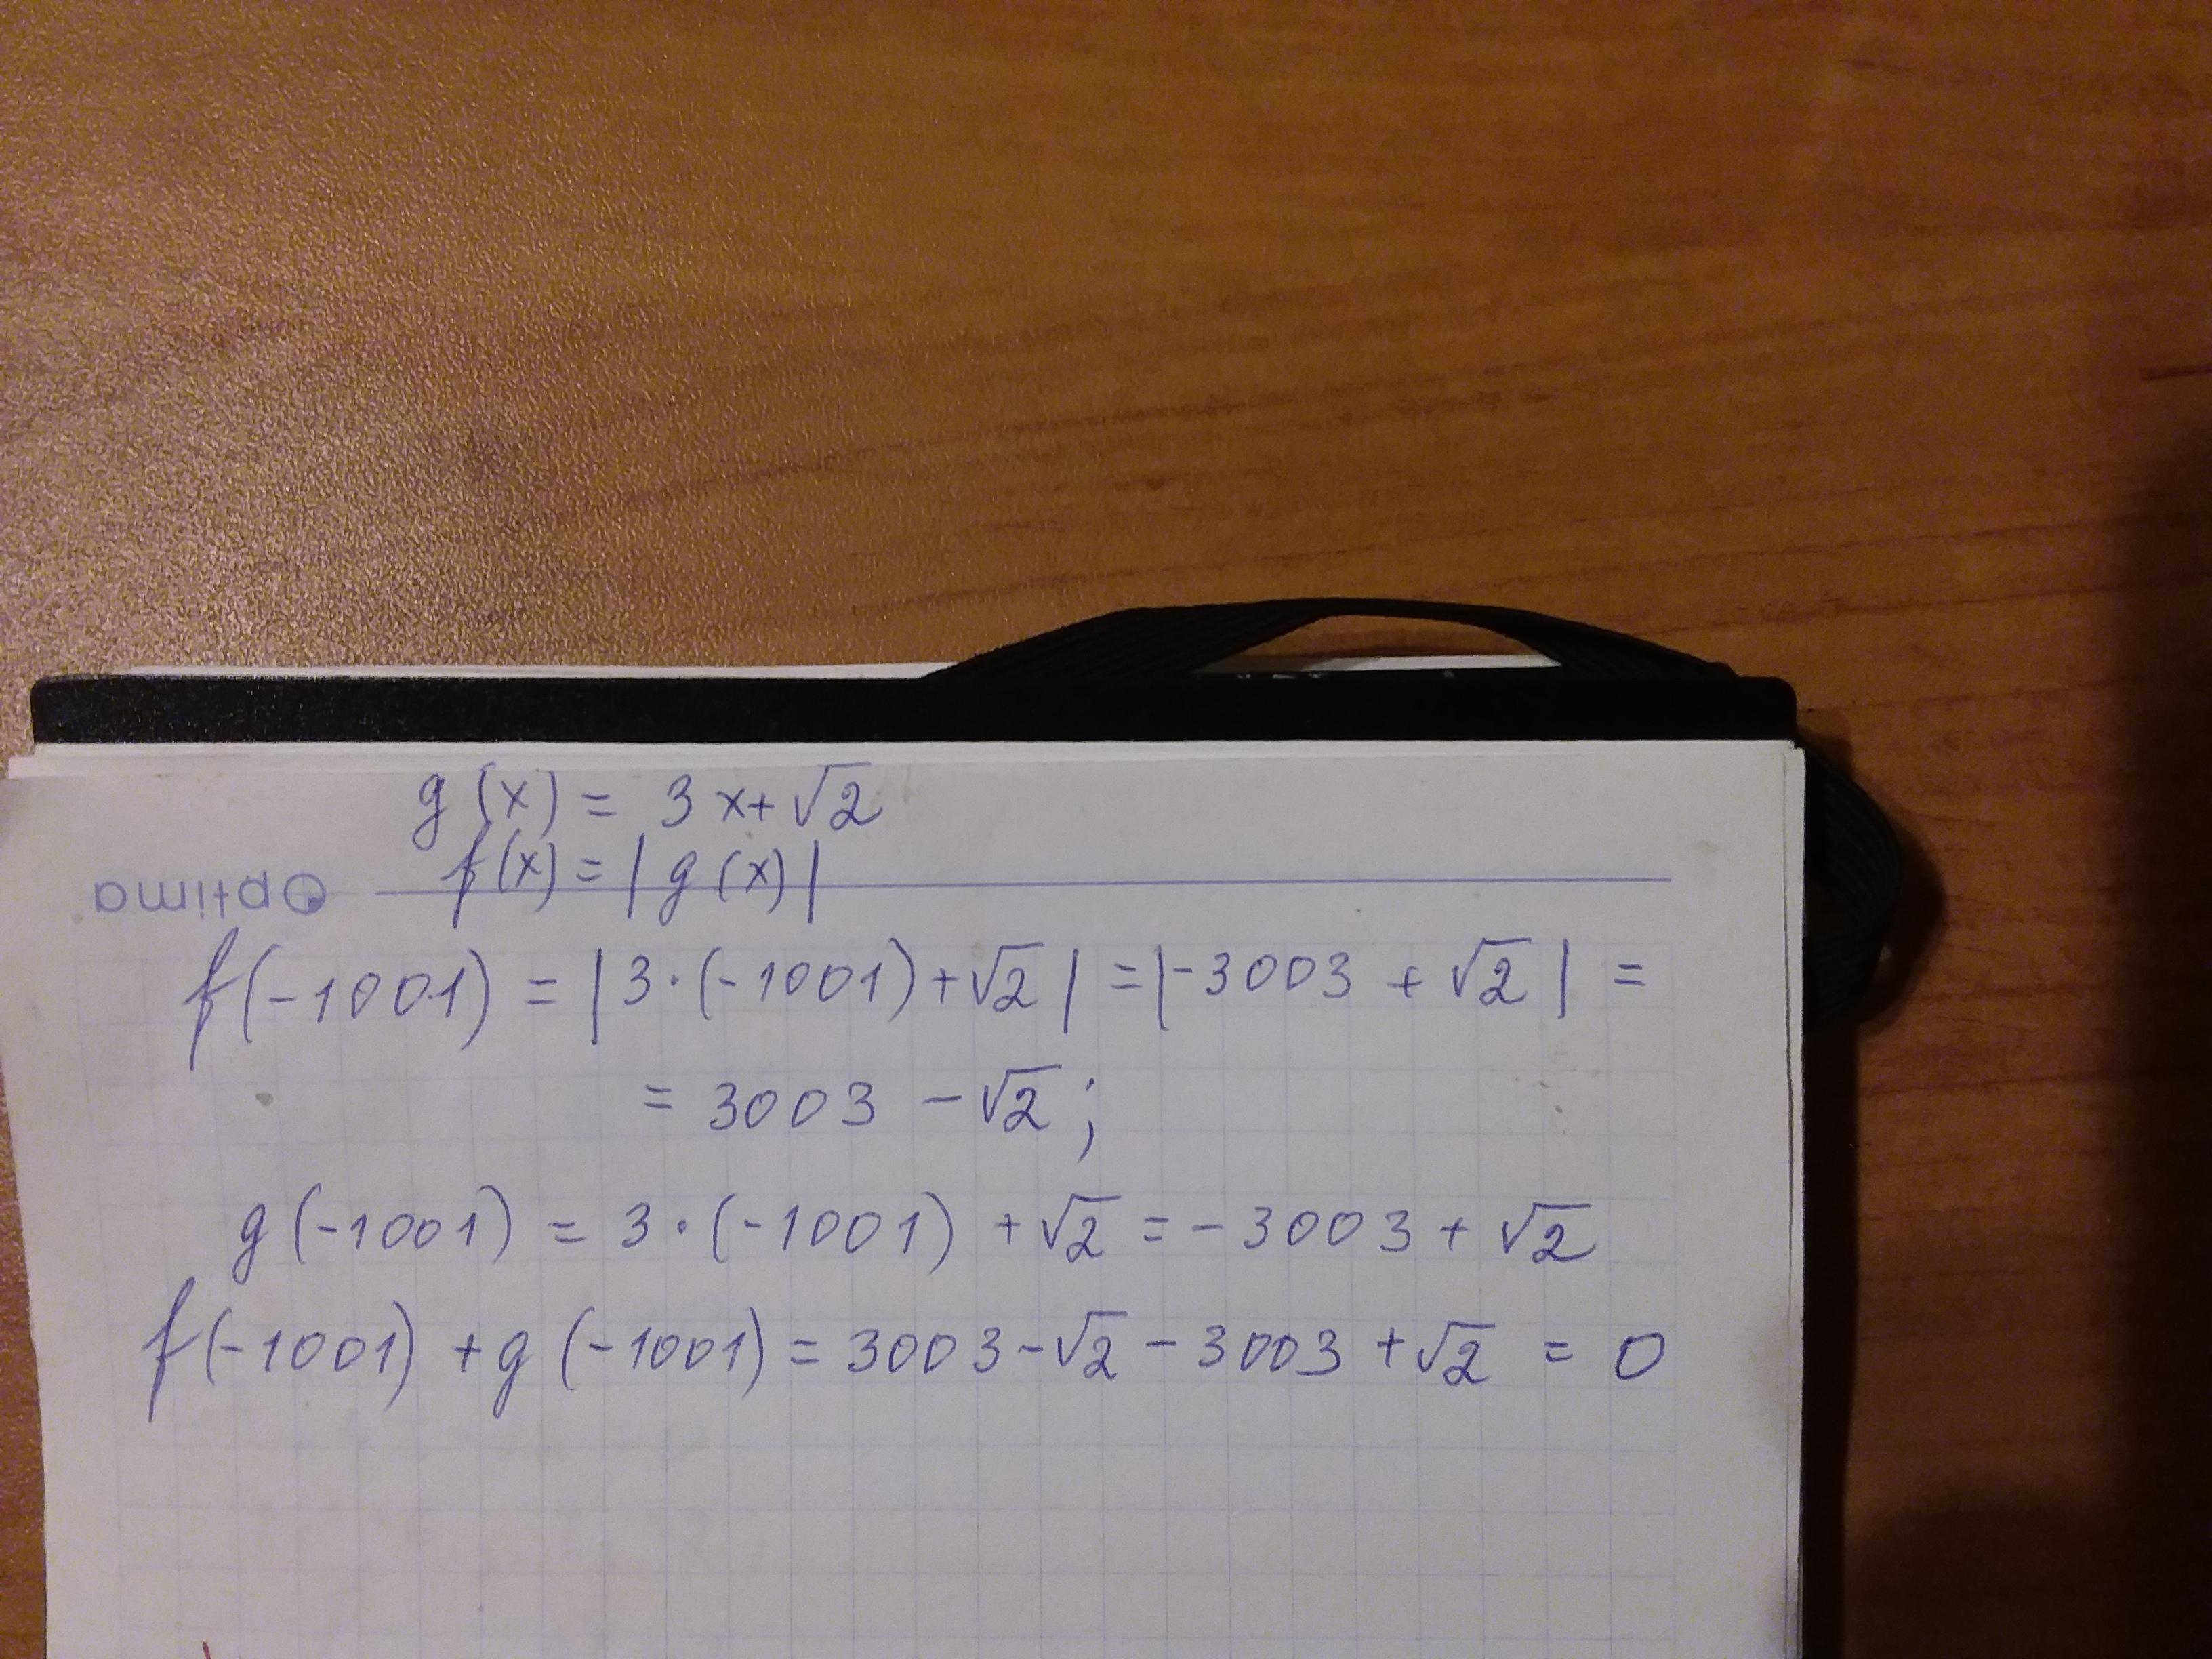 g(x) = 3x+√2
f(x) = |g(x)|
Optima
f(-1001) = |3·(-1001)+√2| = |-3003 + √2| =
= 3003 - √2 ;
g(-1001) = 3·(-1001) + √2 = -3003 + √2
f(-1001) + g(-1001) = 3003 - √2 - 3003 + √2 = 0